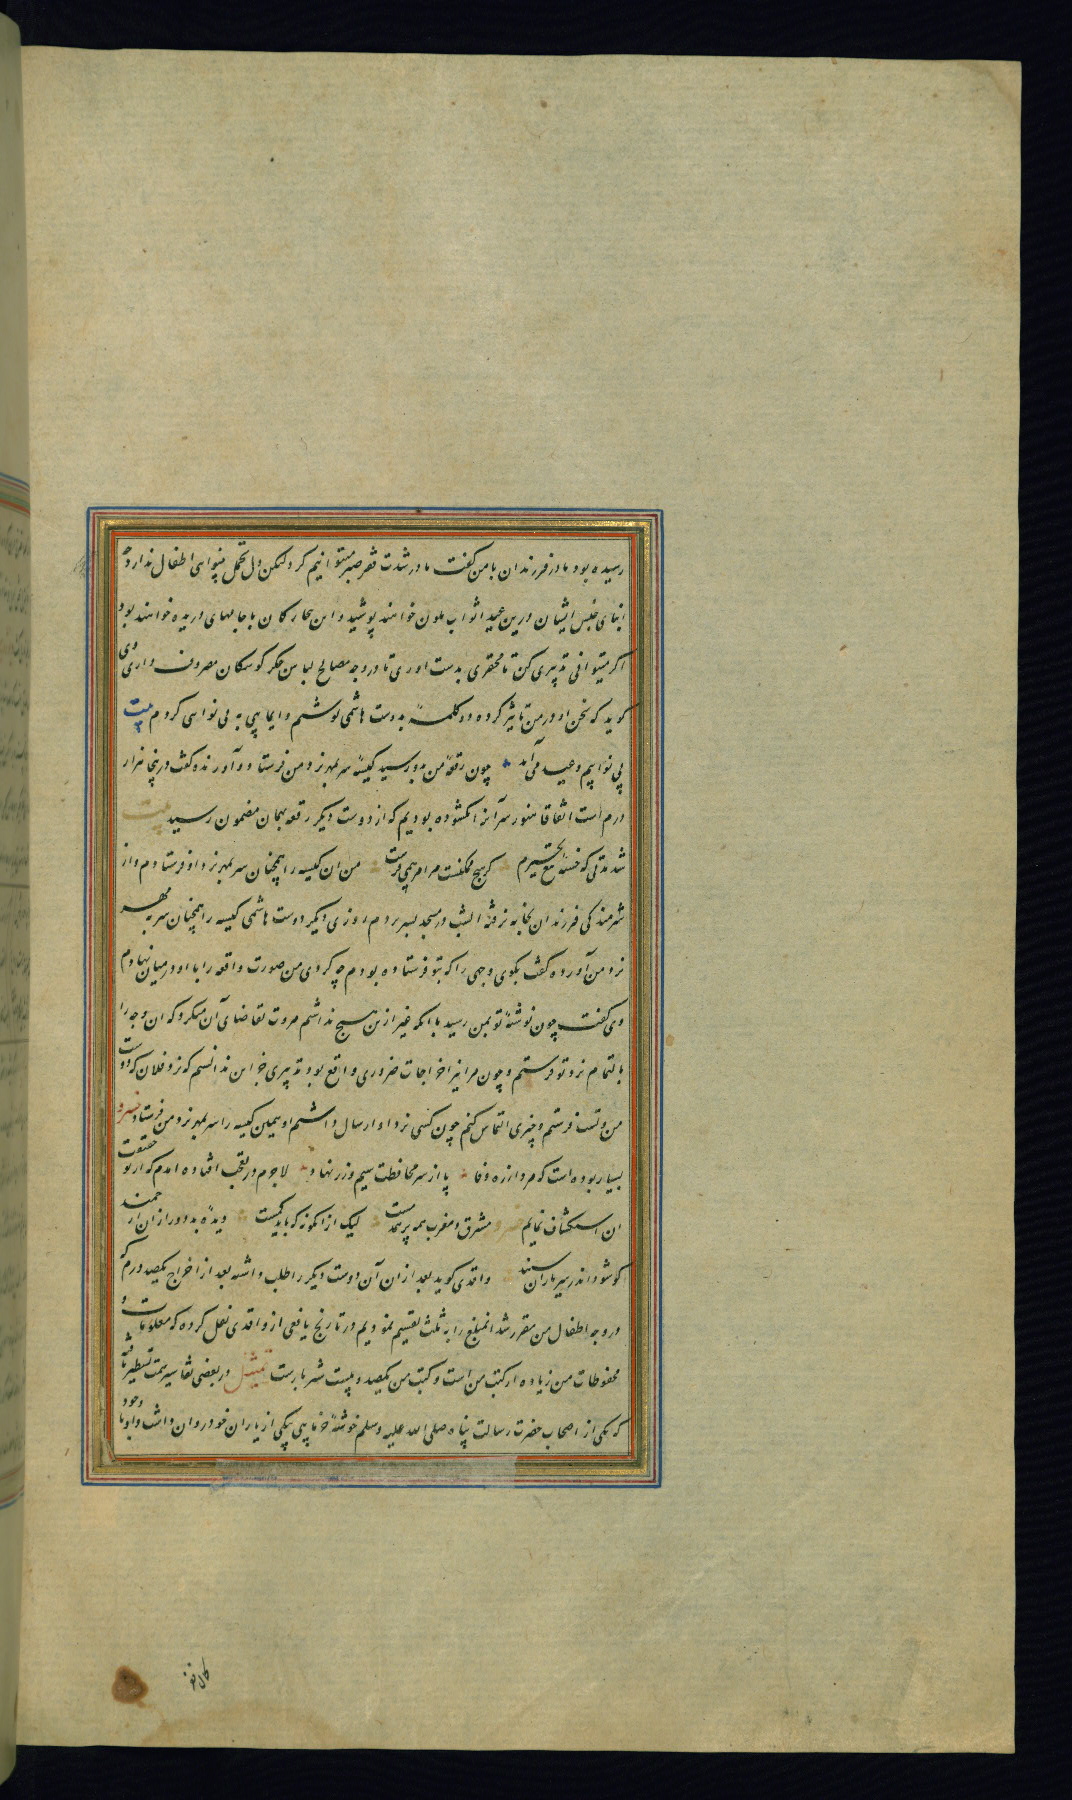 رسیده بود مادر فرزندان با من گفت ما در شدت فقر صبر میتوانیم کرد لیکن دل تحمل بینوائی اطفال ندارد
ابنای جنس ایشان درین عید اثواب ملون خواهند پوشید و این بیچارگان با جامهای دریده خواهند بود
اکر میتوانی تدبیری کن تا محقری بدست اوری تا در وجه مصالح لباس جکر کوشکان مصروف داری وی
کوید که سخن او در من تاثیر کرده دو کلمه بدوست هاشمی نوشتم و ایمایی به بی نوائی کردم بیت
بی نوایم و عید می آمد چون رقعه من بدو رسید کیسه سر بمهر نزد من فرستاد و آورنده گفت در پنجا هزار
درم است اتفاقا هنوز سر آنرا نکشوده بودیم که از دوست دیکر رقعه بهمان مضمون رسید بیت
شد مدتی که خسته تیغ تحیرم که هیچ ممکنست مرا مرهمی فرست من ان کیسه را همچنان سر بمهر نزد او فرستادم و از
شرمندکی فرزندان بخانه نرفته الشب در مسجد بسر بردم روزی دیکر دوست هاشمی کیسه را همچنان سر به مهر
نزد من آورده گفت بکوی وجهی را که بتو فرستاده بودم چه کردی من صورت واقعه را با او در میان نهادم
وی گفت چون نوشته تو بمن رسید با انکه غیر ازین هیچ نداشتم مروت تقاضای آن میکرد که ان وجه را
بالتمام نزد تو فرستم و چون مرا نیز اخراجات ضروری واقع بود تدبیری جز این ندانستم که نزد فلان که دوست
من و تست فرستم و چیزی التماس کنم چون کسی نزد او ارسال داشتم او همین کیسه را سر بمهر نزد من فرستاد خسرو
بسیار بوده است که مرد از ره وفا پا از سر محافظت سیم و زر نهاد لاجرم در تعجب افتاده امدم که از تو حقیقت
ان استکشاف نمایم مشرق و مغرب همه پر همدمست لیک از انکونه که باید کمست دیده بد دور از ان ارجمند
کو شود اندر سر یاران سپند واقدی کوید بعد از ان آن دوست دیکر را طلب داشته بعد از اخراج یکصد درم که
در وجه اطفال من مقرر شد انمبلغ را به ثلث تقسیم نمودیم در تاریخ یافعی از واقدی نقل کرده که معلومات و
محفوظات من زیاده از کتب من است و کتب من یکصد و بیست شتر بارست تمثیل در بعضی تفاسیر سمت تسطیر یافته
که یکی از اصحاب حضرت رسالت پناه صلی الله علیه وسلم خوشه خرمایی بیکی از یاران خود روان داشت و او با وجود
کمال فقر